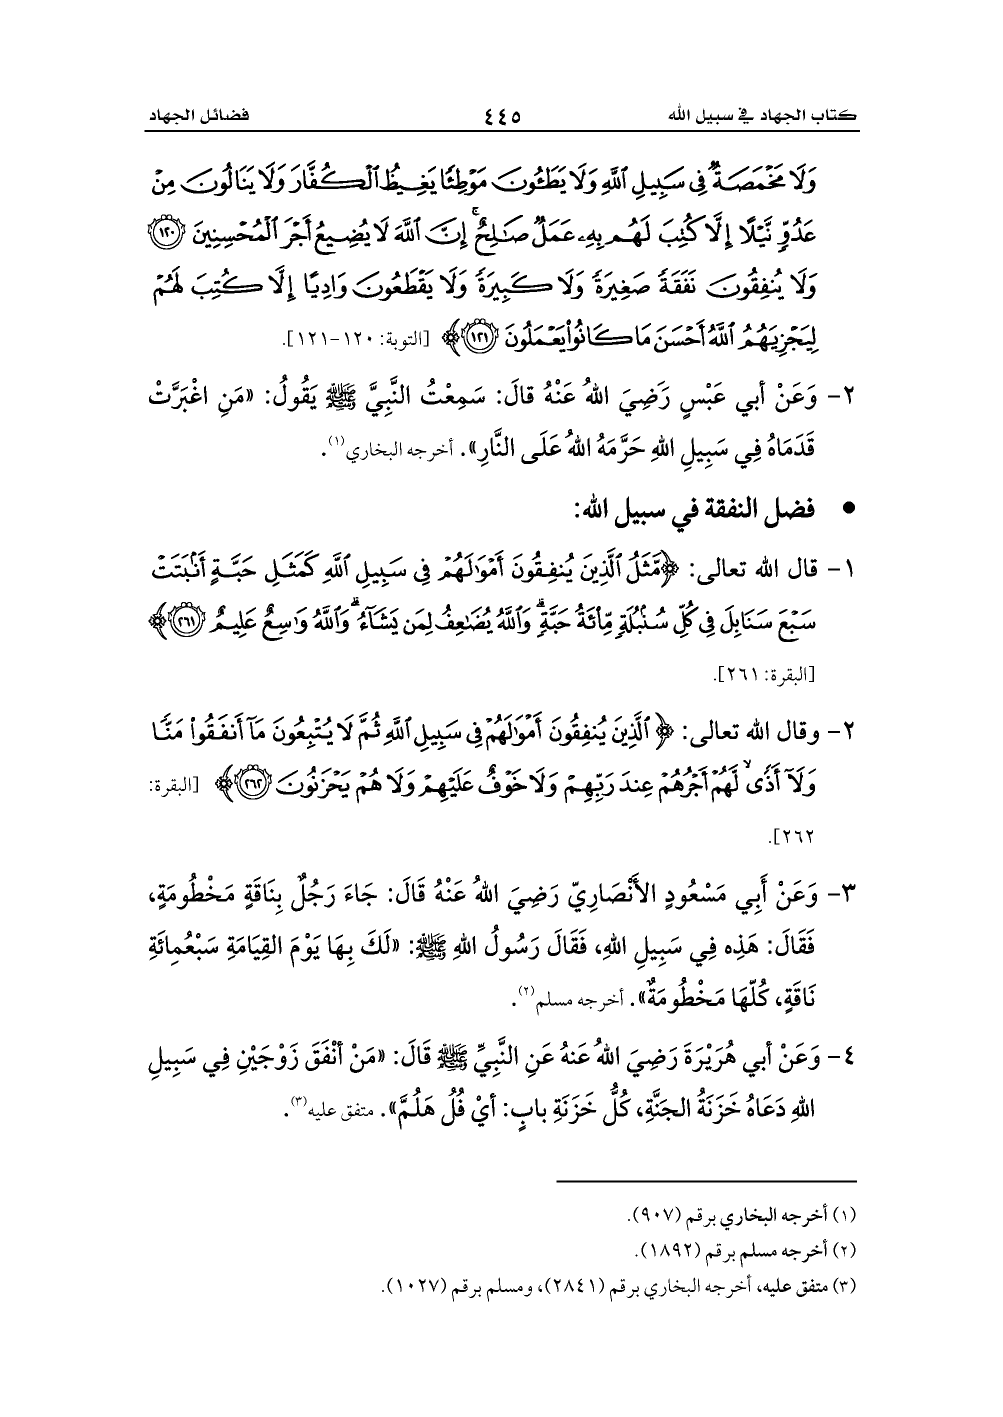 كتاب الجهاد في سبيل الله ٤٤٥ فضائل الجهاد
وَلَا مَخْمَصَةٌ فِي سَبِيلِ ٱللَّهِ وَلَا يَطَـُٔونَ مَوْطِئًا يَغِيظُ ٱلْكُفَّارَ وَلَا يَنَالُونَ مِنْ
عَدُوٍّ نَّيْلًا إِلَّا كُتِبَ لَهُم بِهِۦ عَمَلٌ صَـٰلِحٌ ۚ إِنَّ ٱللَّهَ لَا يُضِيعُ أَجْرَ ٱلْمُحْسِنِينَ ١٢٠
وَلَا يُنفِقُونَ نَفَقَةً صَغِيرَةً وَلَا كَبِيرَةً وَلَا يَقْطَعُونَ وَادِيًا إِلَّا كُتِبَ لَهُمْ
لِيَجْزِيَهُمُ ٱللَّهُ أَحْسَنَ مَا كَانُوا۟ يَعْمَلُونَ ١٢١﴾ [التوبة: ١٢٠-١٢١].
٢- وَعَنْ أبي عَبْسٍ رَضِيَ اللهُ عَنْهُ قالَ: سَمِعْتُ النَّبِيَّ ﷺ يَقُولُ: «مَنِ اغْبَرَّتْ
قَدَمَاهُ فِي سَبِيلِ اللهِ حَرَّمَهُ اللهُ عَلَى النَّارِ». أخرجه البخاري(١).
• فضل النفقة في سبيل الله:
١- قال الله تعالى: ﴿مَّثَلُ ٱلَّذِينَ يُنفِقُونَ أَمْوَٰلَهُمْ فِي سَبِيلِ ٱللَّهِ كَمَثَلِ حَبَّةٍ أَنۢبَتَتْ
سَبْعَ سَنَابِلَ فِي كُلِّ سُنۢبُلَةٍ مِّا۟ئَةُ حَبَّةٍ ۗ وَٱللَّهُ يُضَـٰعِفُ لِمَن يَشَآءُ ۗ وَٱللَّهُ وَاسِعٌ عَلِيمٌ ٢٦١﴾
[البقرة: ٢٦١].
٢- وقال الله تعالى: ﴿ٱلَّذِينَ يُنفِقُونَ أَمْوَٰلَهُمْ فِي سَبِيلِ ٱللَّهِ ثُمَّ لَا يُتْبِعُونَ مَآ أَنفَقُوا۟ مَنًّا
وَلَآ أَذًى ۙ لَّهُمْ أَجْرُهُمْ عِندَ رَبِّهِمْ وَلَا خَوْفٌ عَلَيْهِمْ وَلَا هُمْ يَحْزَنُونَ ٢٦٢﴾ [البقرة:
٢٦٢].
٣- وَعَنْ أَبِي مَسْعُودٍ الأَنْصَارِيّ رَضِيَ اللهُ عَنْهُ قَالَ: جَاءَ رَجُلٌ بِنَاقَةٍ مَخْطُومَةٍ،
فَقَالَ: هَذِه فِي سَبِيلِ اللهِ، فَقَالَ رَسُولُ اللهِ ﷺ: «لَكَ بِهَا يَوْمَ القِيَامَةِ سَبْعُمِائَةِ
نَاقَةٍ، كُلّهَا مَخْطُومَةٌ». أخرجه مسلم(٢).
٤- وَعَنْ أبي هُرَيْرَةَ رَضِيَ اللهُ عَنهُ عَنِ النَّبِيِّ ﷺ قَالَ: «مَنْ أنْفَقَ زَوْجَيْنِ فِي سَبِيلِ
اللهِ دَعَاهُ خَزَنَةُ الجَنَّةِ، كُلُّ خَزَنَةِ بابٍ: أيْ فُلُ هَلُمَّ». متفق عليه(٣).
(١) أخرجه البخاري برقم (٩٠٧).
(٢) أخرجه مسلم برقم (١٨٩٢).
(٣) متفق عليه، أخرجه البخاري برقم (٢٨٤١)، ومسلم برقم (١٠٢٧).